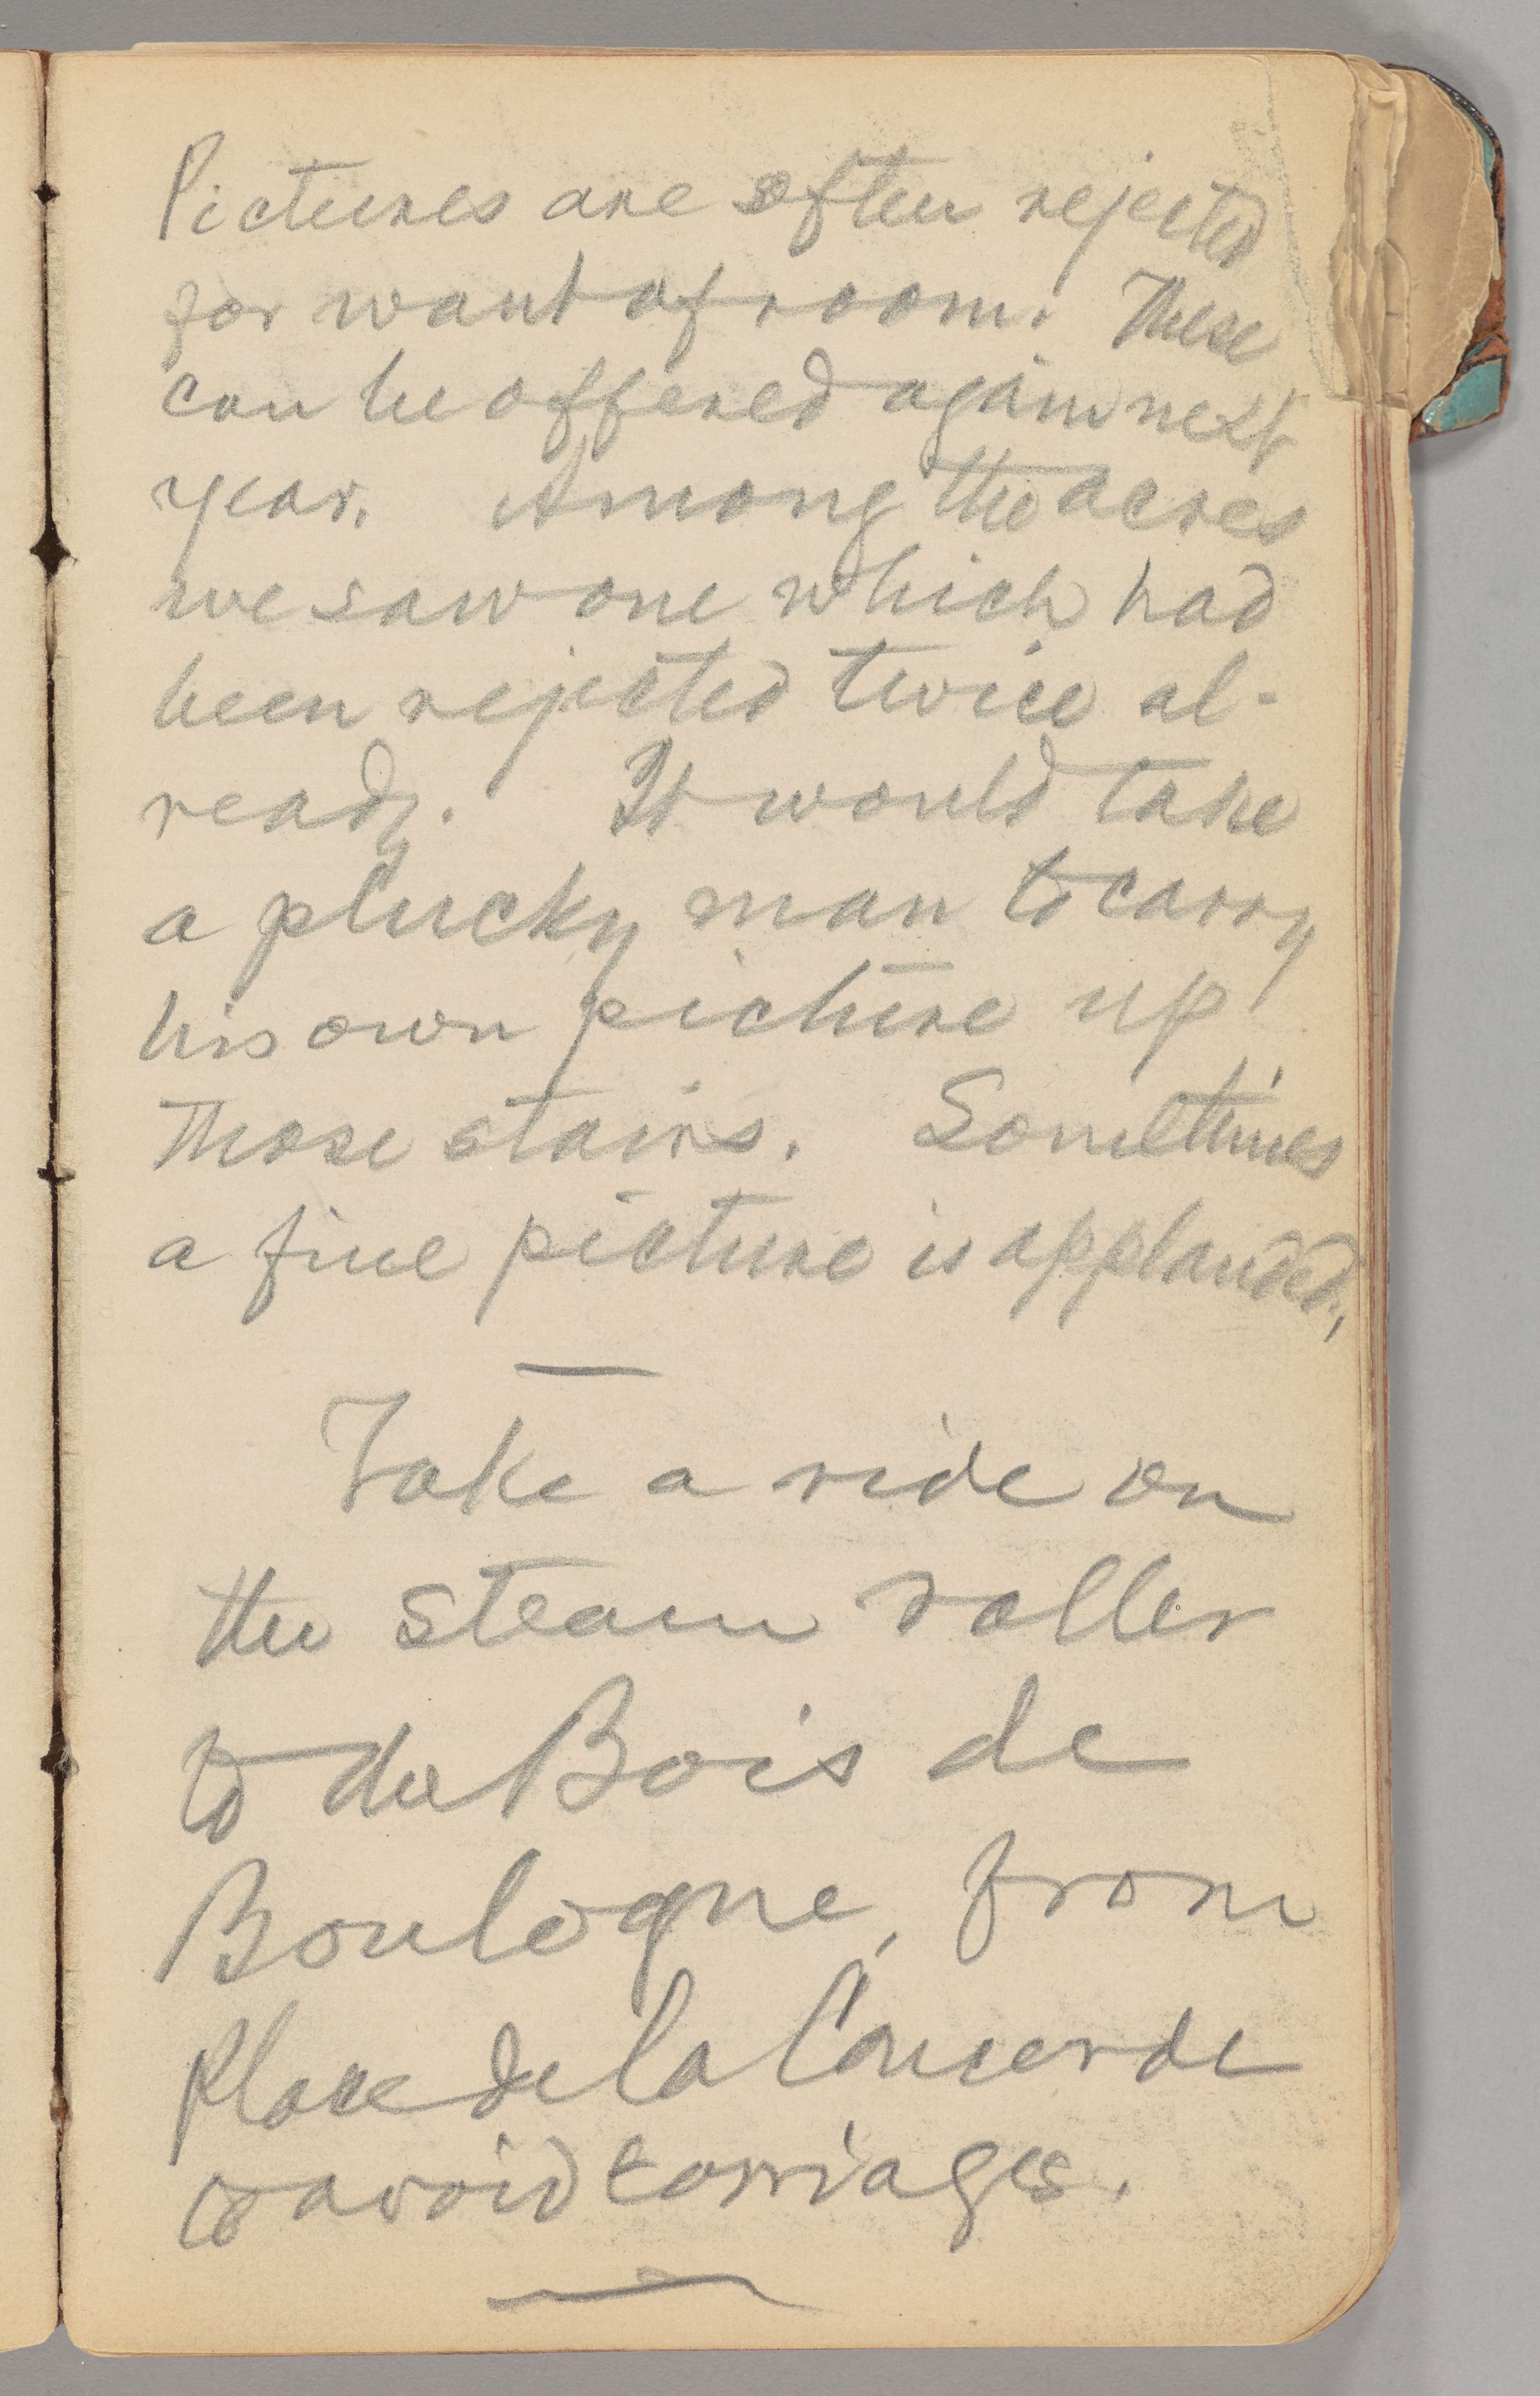 Pictures are often rejected
for want of room. These
can be offered again next
year. Among the acres
we saw one which had
been rejected twice al-
ready. It would take
a plucky man to carry
his own picture up
those stairs. Sometimes
a fine picture is applauded.
Take a ride on
the steam roller
to the Bois de
Boulogne, from
Place de la Concorde
to avoid carriages.